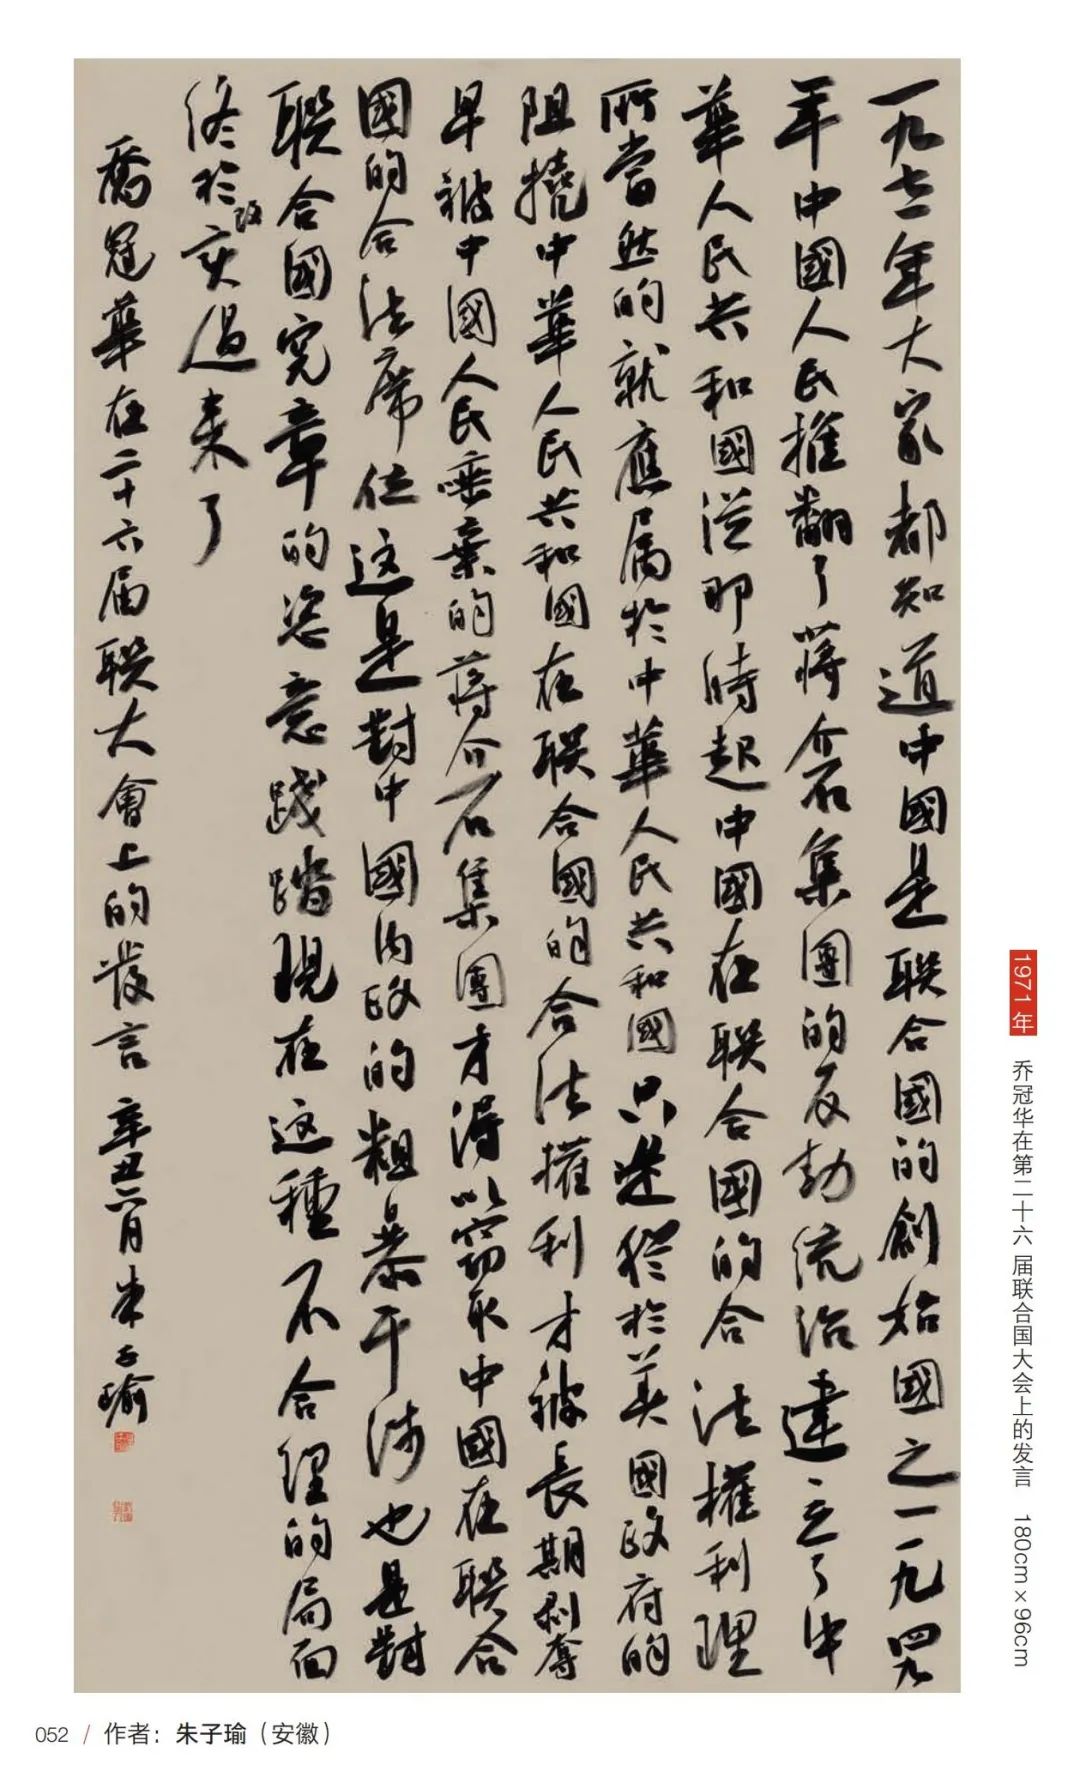 一九七一年大家都知道中國是聯合國的創始國之一一九四九
年中國人民推翻了蔣介石集團的反動統治建立了中
華人民共和國從那時起中國在聯合國的合法權利理
所當然的就應屬於中華人民共和國只是於美國政府的
阻撓中華人民共和國在聯合國的合法權利才被長期剝奪
早被中國人民唾棄的蔣介石集團才得以竊取中國在聯合
國的合法席位这是對中國内政的粗暴干涉也是對
聯合國憲章的恣意踐踏現在这種不合理的局面
終於改變過来了
喬冠華在二十六届聯大會上的發言 辛丑六月朱子瑜
1971年 乔冠华在第二十六届联合国大会上的发言 180cm×96cm
052 / 作者：朱子瑜（安徽）